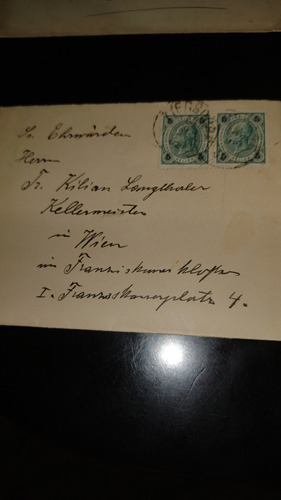 Sr. Ehrwürden
Herrn
Fr. Kilian Langthaler
Kellermeister
in
Wien
im Franziskaner Kloster
I. Franziskanerplatz 4.